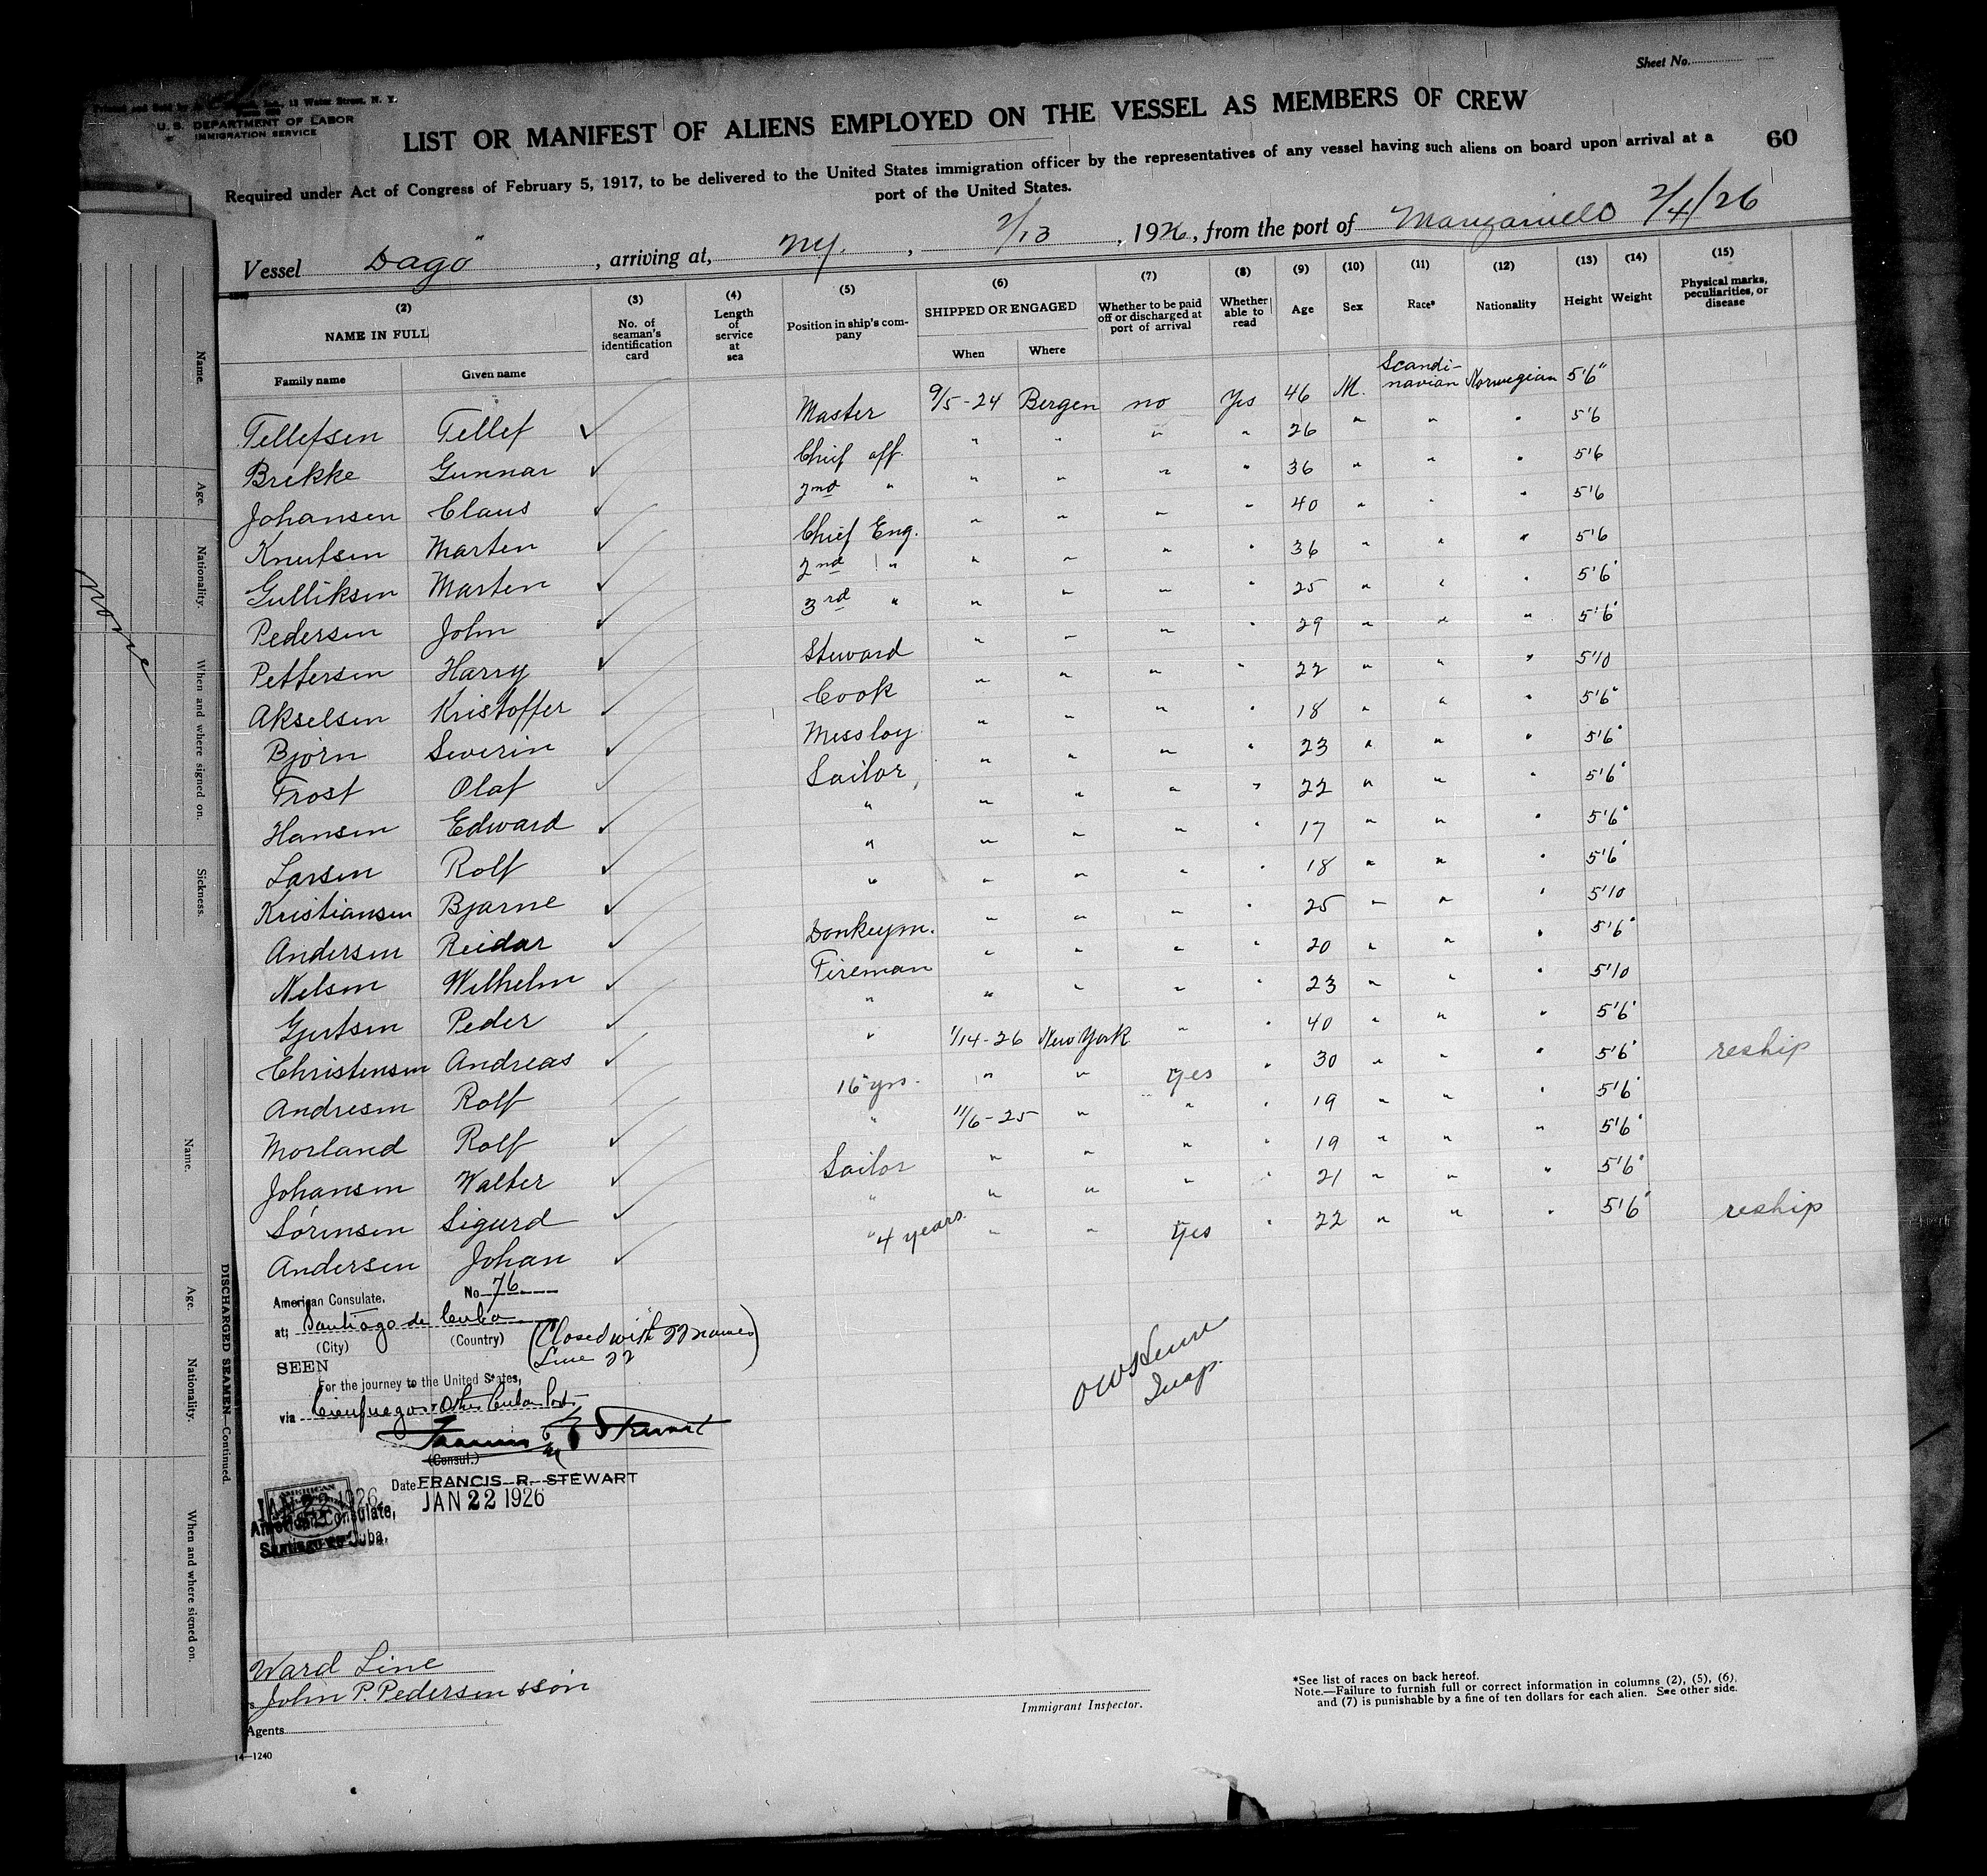 Sheet No.
13 Water Street, N. Y.
U. S. DEPARTMENT OF LABOR
IMMIGRATION SERVICE
LIST OR MANIFEST OF ALIENS EMPLOYED ON THE VESSEL AS MEMBERS OF CREW
60
Required under Act of Congress of February 5, 1917, to be delivered to the United States immigration officer by the representatives of any vessel having such aliens on board upon arrival at a
port of the United States.
Vessel Dago , arriving at, NY. , 2/13 , 1926, from the port of Manzanillo 2/4/26
(2) (3) (4) (5) (6) (7) (8) (9) (10) (11) (12) (13) (14) (15)
NAME IN FULL No. of seaman's identification card Length of service at sea Position in ship's company SHIPPED OR ENGAGED Whether to be paid off or discharged at port of arrival Whether able to read Age Sex Race* Nationality Height Weight Physical marks, peculiarities, or disease
Family name Given name When Where
Tellefsen Tellef ✓ Master 9/5-24 Bergen no Yes 46 M. Scandinavian Norwegian 5'6"
Brekke Gunnar ✓ Chief off. " " " " 26 " " " 5'6
Johansen Claus ✓ 2nd " " " " " 36 " " " 5'6
Knutsen Marten ✓ Chief Eng. " " " " 40 " " " 5'6
Gulliksen Marten ✓ 2nd " " " " " 36 " " " 5'6
Pedersen John ✓ 3rd " " " " " 25 " " " 5'6"
Pettersen Harry ✓ Steward " " " " 29 " " " 5'6"
Akselsen Kristoffer ✓ Cook " " " " 22 " " " 5'10
Bjorn Severin ✓ Messboy " " " " 18 " " " 5'6"
Frost Olaf ✓ Sailor " " " " 23 " " " 5'6"
Hansen Edward ✓ " " " " " 22 " " " 5'6"
Larsen Rolf ✓ " " " " " 17 " " " 5'6"
Kristiansen Bjarne ✓ " " " " " 18 " " " 5'6"
Andersen Reidar ✓ Donkeym. " " " " 25 " " " 5'10
Nelsen Wilhelm ✓ Fireman " " " " 20 " " " 5'6"
Gjertsen Peder ✓ " " " " " 23 " " " 5'10
Christensen Andreas ✓ " 1/14-26 New York " " 40 " " " 5'6"
Andresen Rolf 16 yrs. " " Yes " 30 " " " 5'6" reship
Morland Rolf ✓ " 11/6-25 " " " 19 " " " 5'6"
Johansen Walter ✓ Sailor " " " " 19 " " " 5'6"
Sørensen Sigurd ✓ " " " " " 21 " " " 5'6"
Andersen Johan ✓ " 4 years. " " Yes " 22 " " " 5'6" reship
American Consulate, No 76
at; Santiago de Cuba
(City) (Country) (Closed with 22 names
Line 22)
SEEN
For the journey to the United States,
via Cienfuegos & Other Cuba Ports
(Consul.)
Date FRANCIS R. STEWART
JAN 22 1926
JAN 22 1926
American Consulate,
Santiago de Cuba.
Insp.
Ward Line
John P. Pedersen & son
Agents
14—1240
Immigrant Inspector.
*See list of races on back hereof.
Note.—Failure to furnish full or correct information in columns (2), (5), (6),
and (7) is punishable by a fine of ten dollars for each alien. See other side.
Name.
Age.
Nationality.
When and where signed on.
Sickness.
none
DISCHARGED SEAMEN—Continued.
Name.
Age.
Nationality.
When and where signed on.